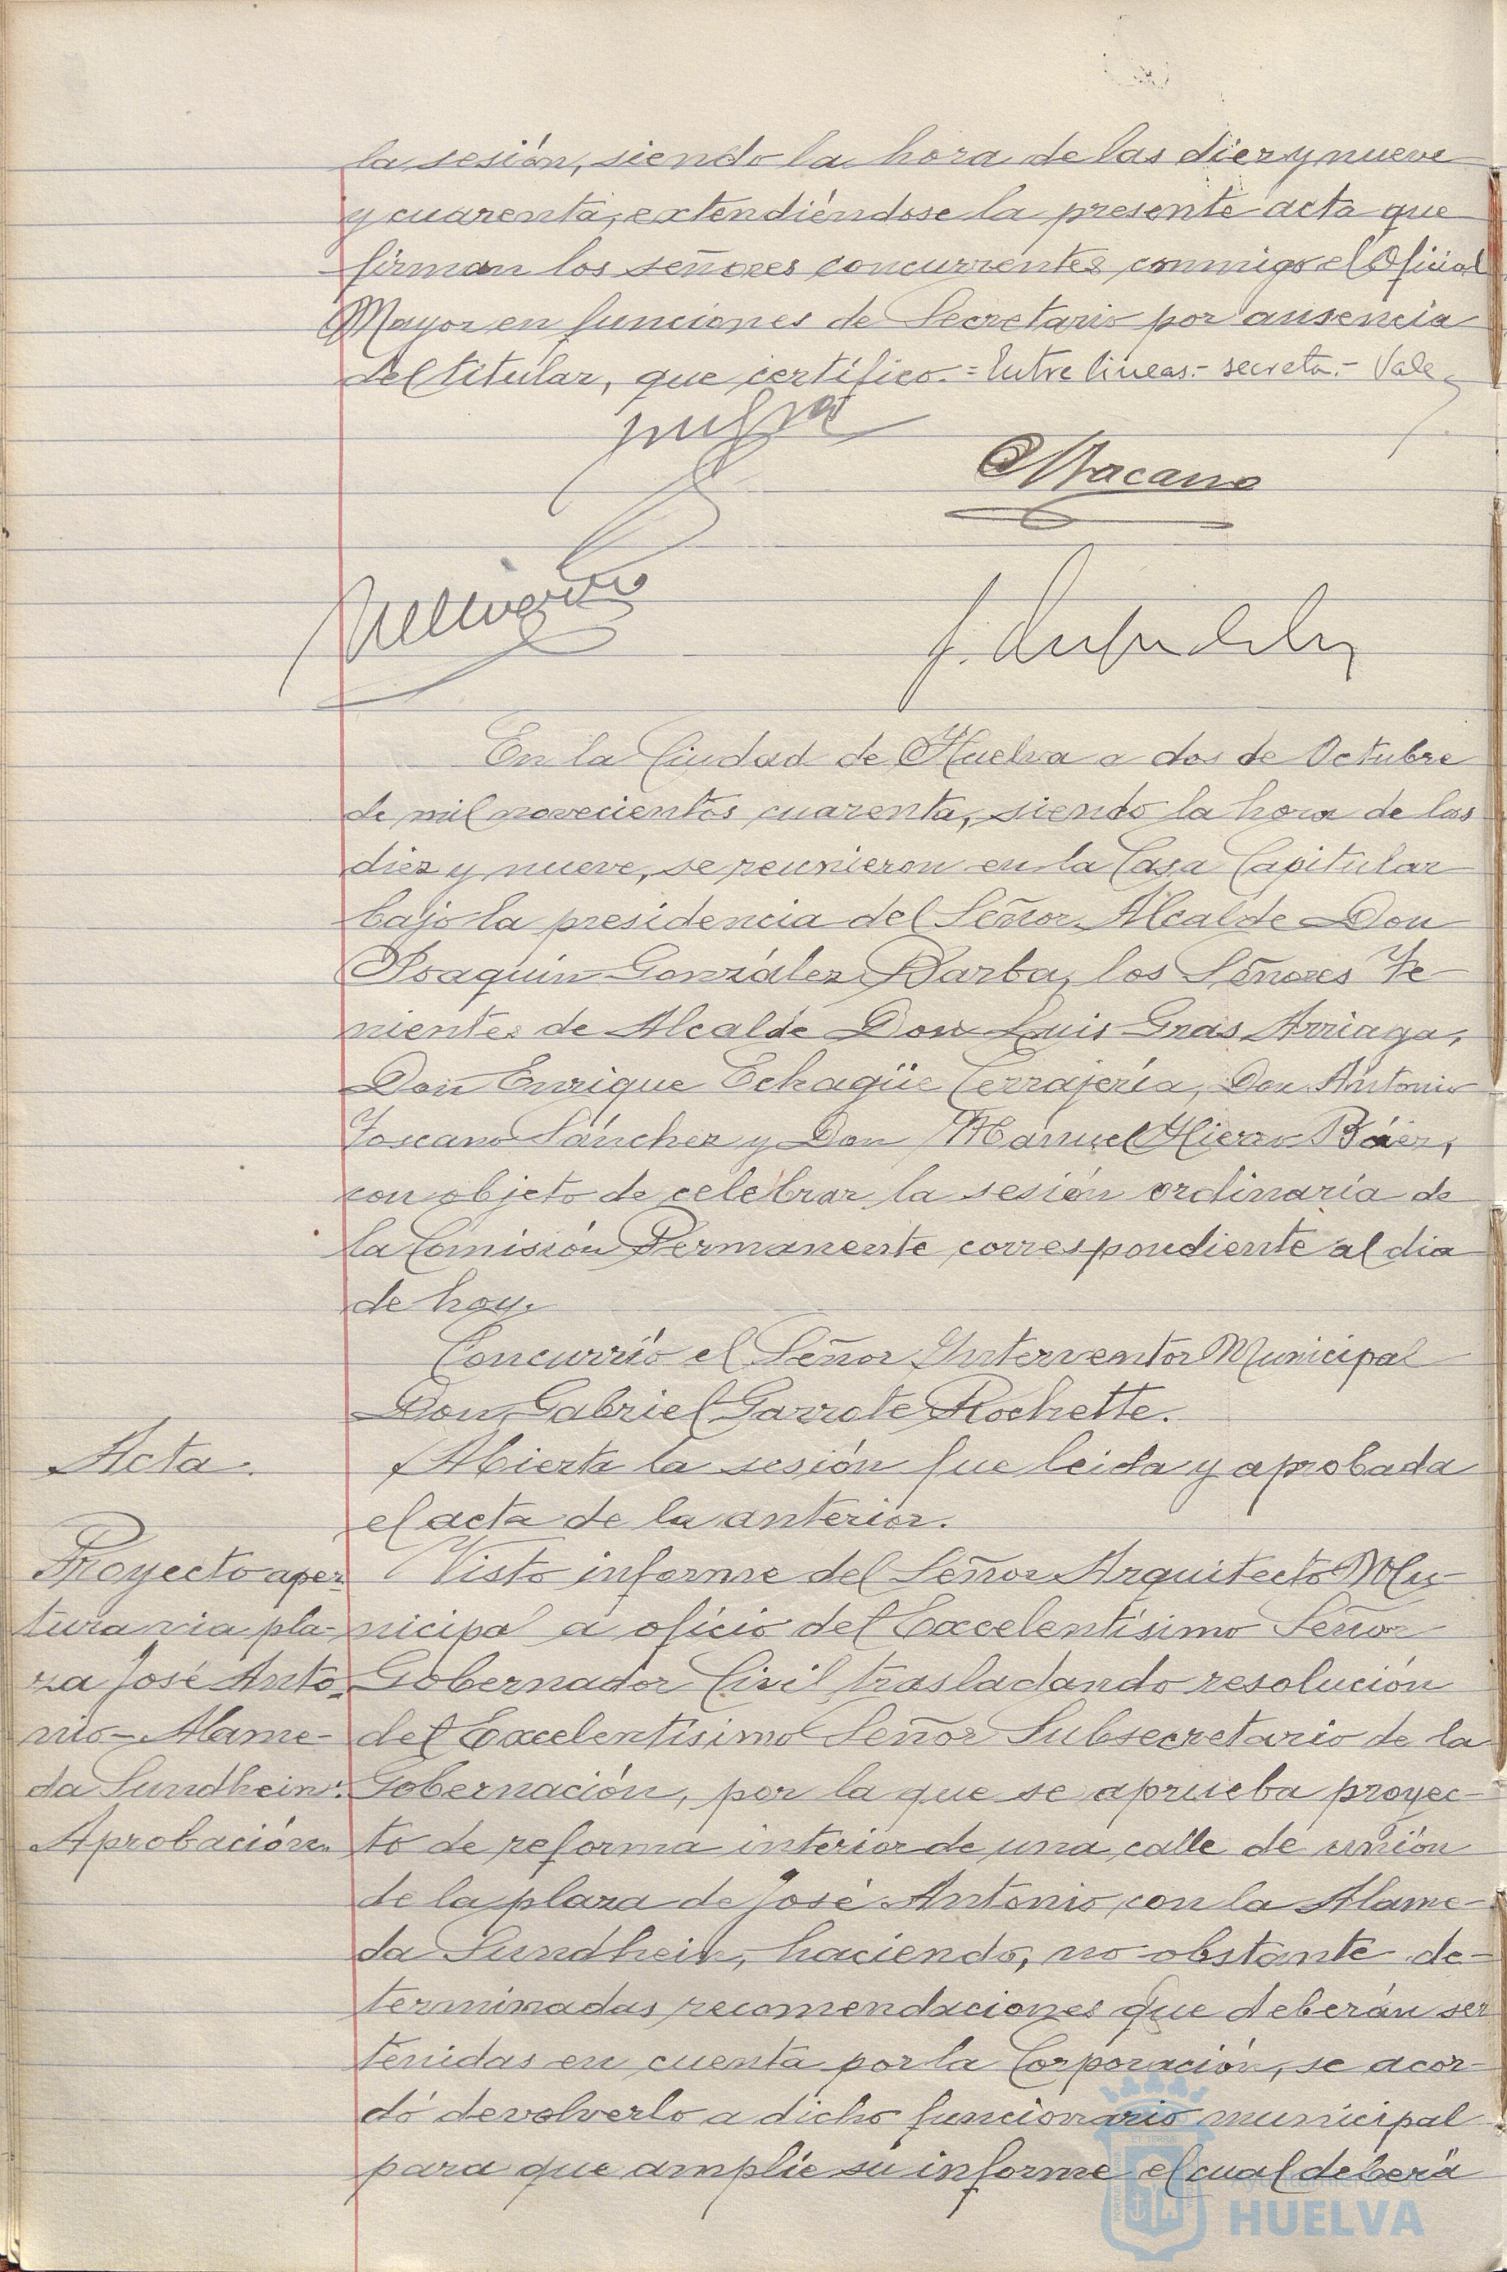 la sesión, siendo la hora de las diez y nueve
y cuarenta, extendiéndose la presente acta que
firman los señores concurrentes conmigo el Oficial
Mayor en funciones de Secretario por ausencia
del titular, que certifico.= Entre lineas.- secreta.- Vale
En la Ciudad de Huelva a dos de Octubre
de mil novecientos cuarenta, siendo la hora de las
diez y nueve, se reunieron en la Casa Capitular
bajo la presidencia del Señor Alcalde Don
Joaquín González Barba, los Señores Te-
nientes de Alcalde Don Luis Gras Arriaga,
Don Enrique Echagüe Cerrajería, Don Antonio
Toscano Sánchez y Don Manuel Hierro Báez,
con objeto de celebrar la sesión ordinaria de
la Comisión Permanente correspondiente al dia
de hoy.
Concurrió el Señor Interventor Municipal
Don Gabriel Garrote Rochette.
Acta.
Abierta la sesión fue leida y aprobada
el acta de la anterior.
Proyecto aper-
tura via pla-
za José Anto-
nio - Alame-
da Sundhein.
Aprobación.
Visto informe del Señor Arquitecto Mu-
nicipal a oficio del Excelentísimo Señor
Gobernador Civil trasladando resolución
del Excelentísimo Señor Subsecretario de la
Gobernación, por la que se aprueba proyec-
to de reforma interior de una calle de unión
de la plaza de José Antonio con la Alame-
da Sundhein, haciendo, no obstante de-
terminadas recomendaciones que deberán ser
tenidas en cuenta por la Corporación, se acor-
dó devolverlo a dicho funcionario municipal
para que amplíe su informe el cual deberá
Ayuntamiento de
HUELVA